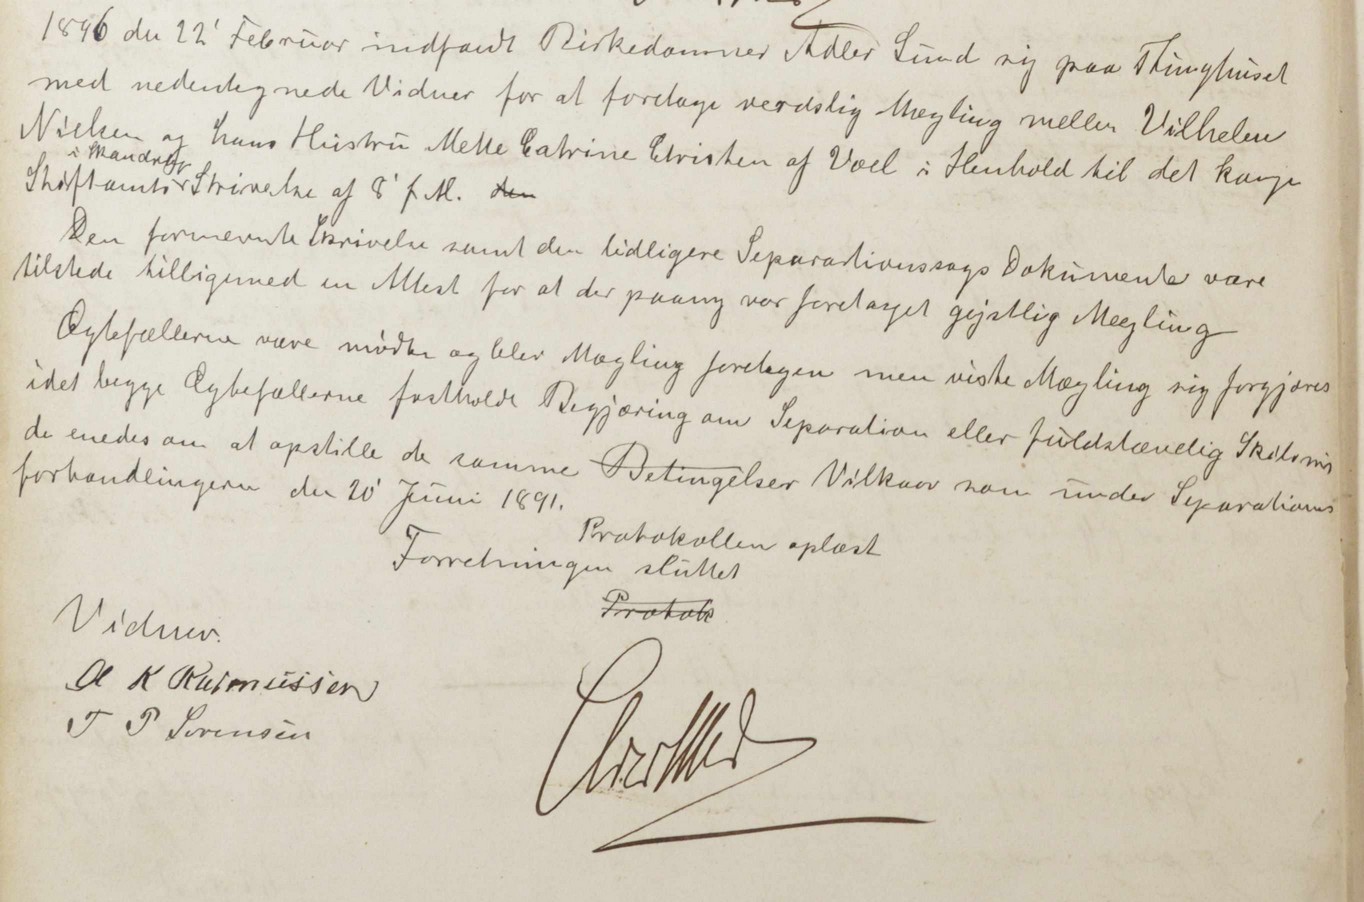 1896 den 22' Februar indfandt Birkedommer Adler Lund sig paa Thinghuset
med nedentegnede Vidner for at foretage verdslig Mægling mellem Vilhelm
Nielsen og hans Hustru Mette Catrine Christen af Voel i Henhold til det kongl
i Skanderborg
Stiftamts Skrivelse af 8' f.M. den
Den formente Skrivelse samt den tidligere Separartionssags Dokumenter vare
tilstede tilligemed en Attest for at der paany var foretaget gejstlig Mægling
Ægtefællerne vare mødte og blev Mægling foretagen men viste Mægling sig forgjæves
idet begge Ægtefællerne fastholdt Begjæring om Separation eller fuldstændig Skilsmis
de enedes om at opstille de samme Betingelser Vilkaar som under Separations
forhandlingerne den 20' Juni 1891.
Protokollen oplæst
Forretningen sluttet
Protok
Vidner.
K Rasmussen
T P Sørensen